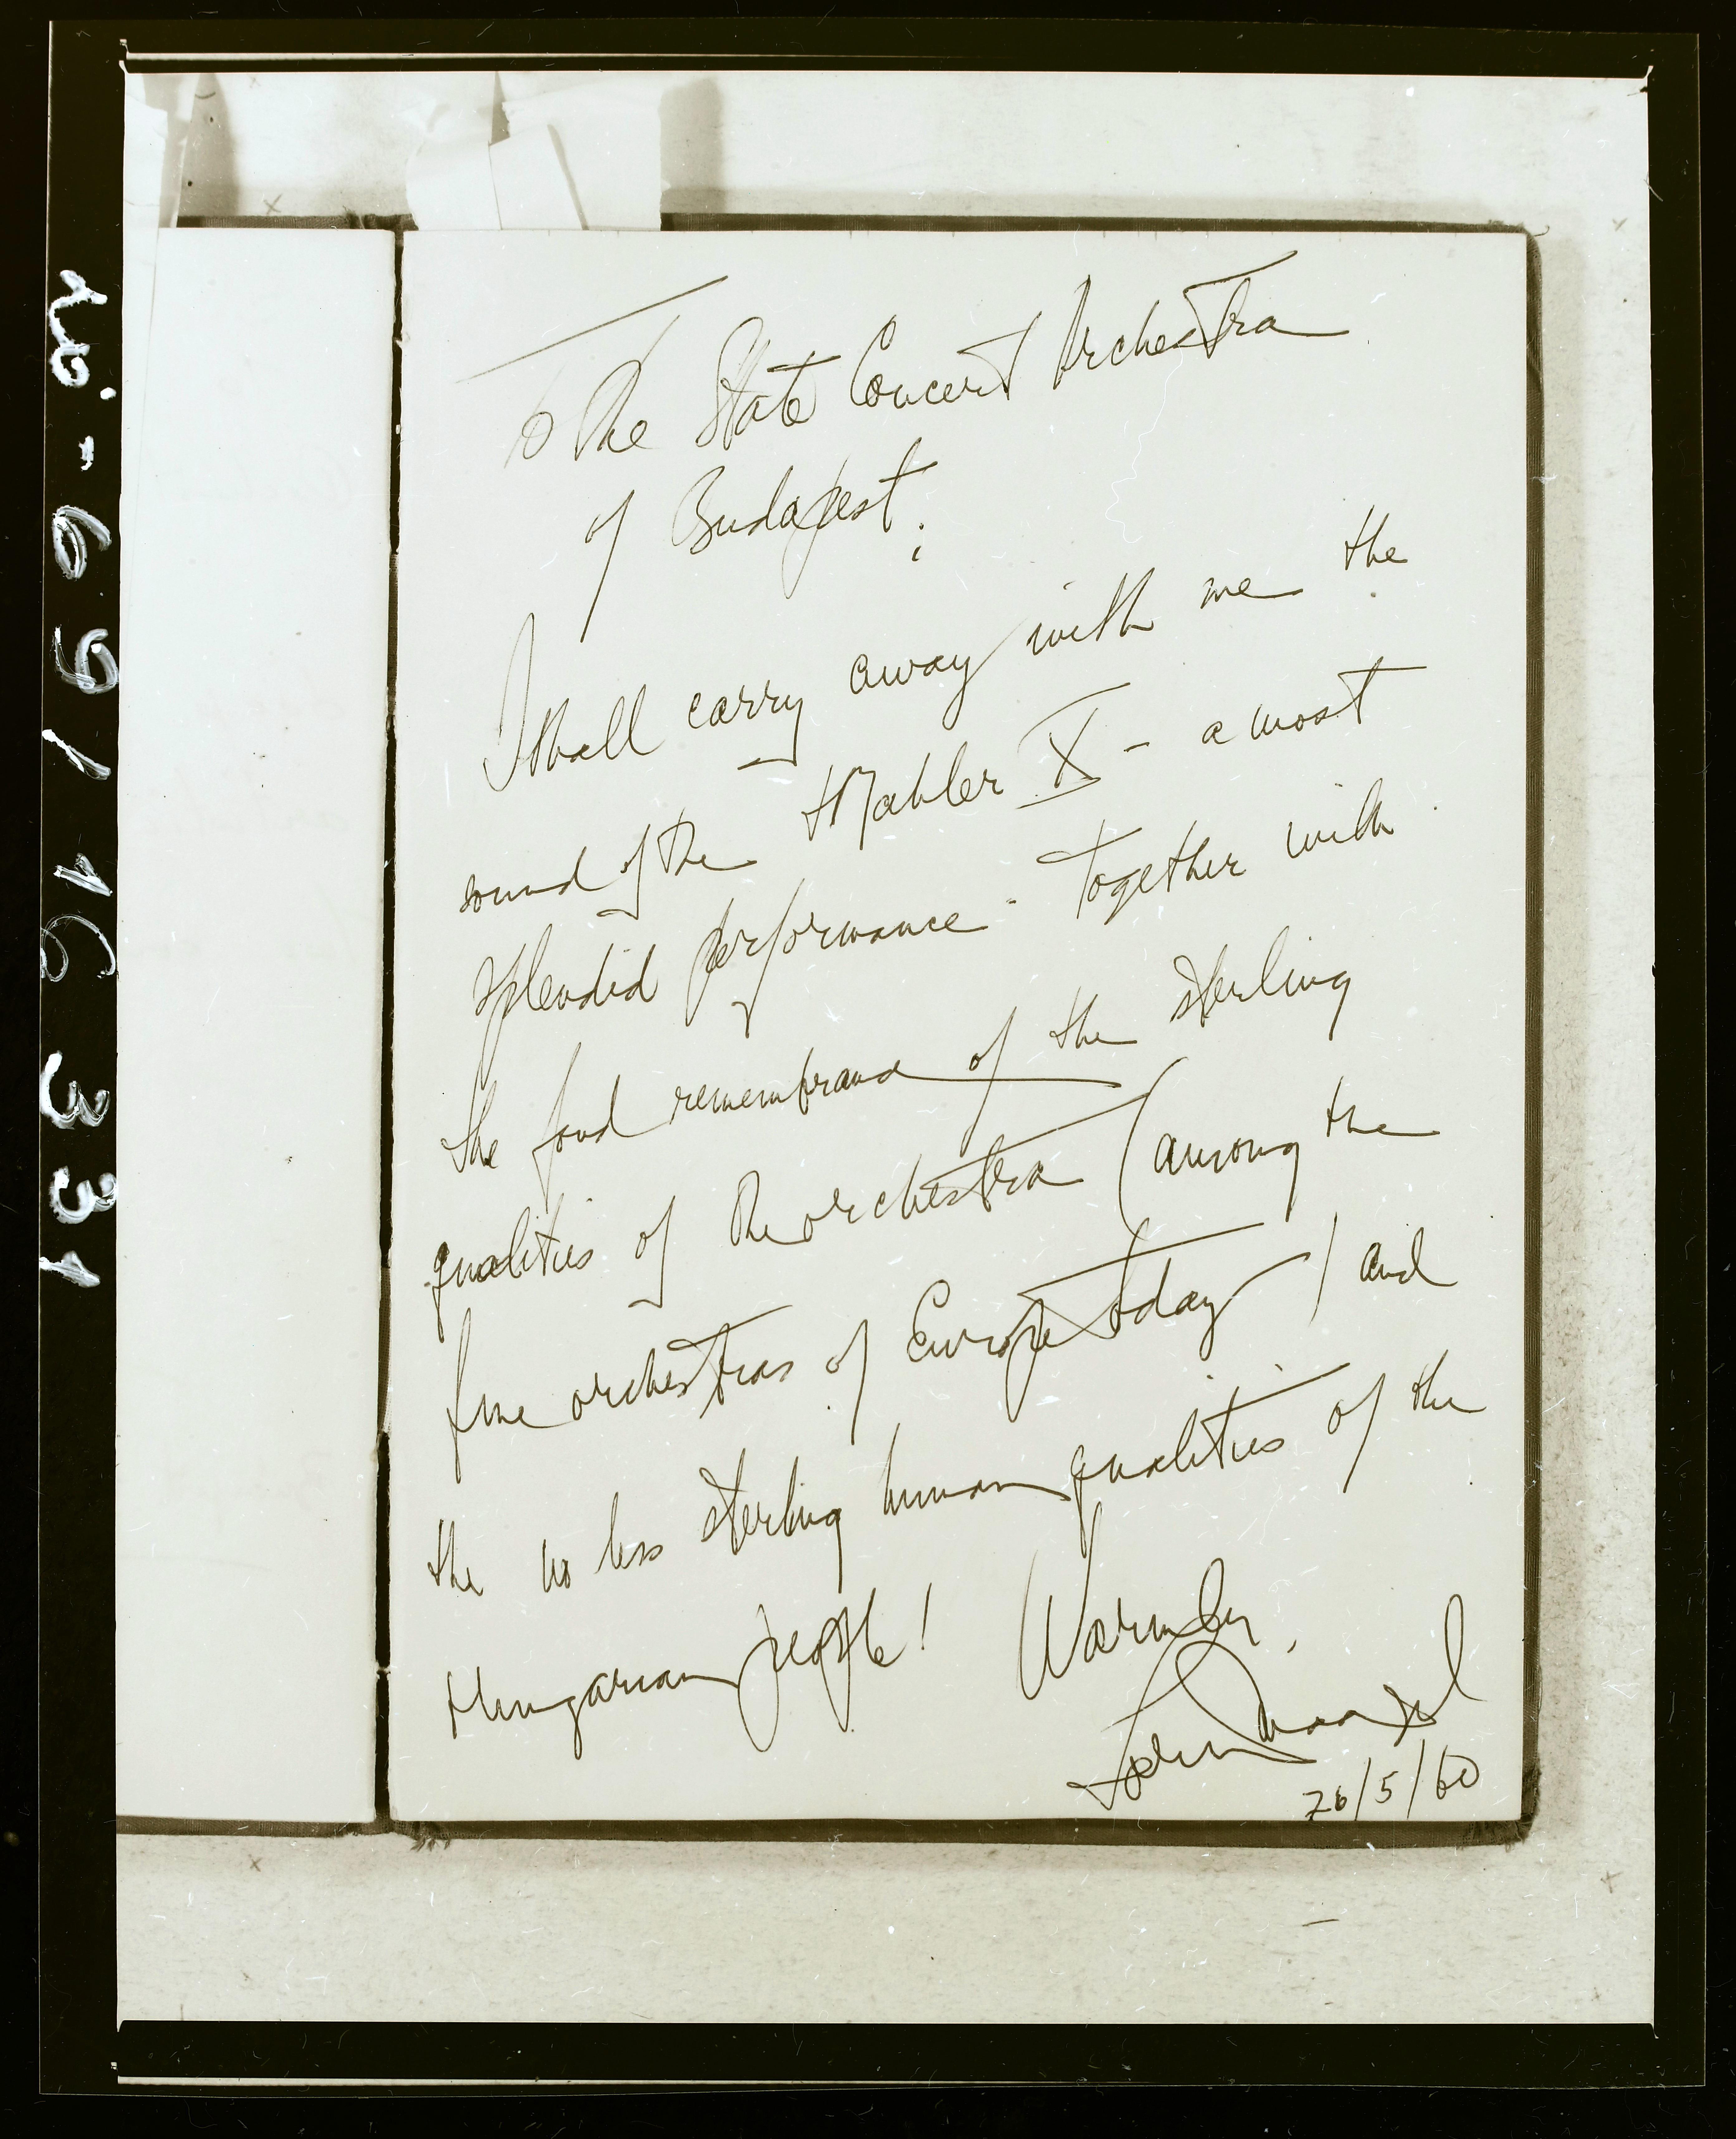 To the State Concert Orchestra
of Budapest:
I shall carry away with me the
sound of the Mahler X - a most
splendid performance - together with
the fond remembrance of the sterling
qualities of the orchestra (among the
fine orchestras of Europe today) and
the no less sterling human qualities of the
Hungarian people! Warmly,
Lorin Maazel
26/5/60